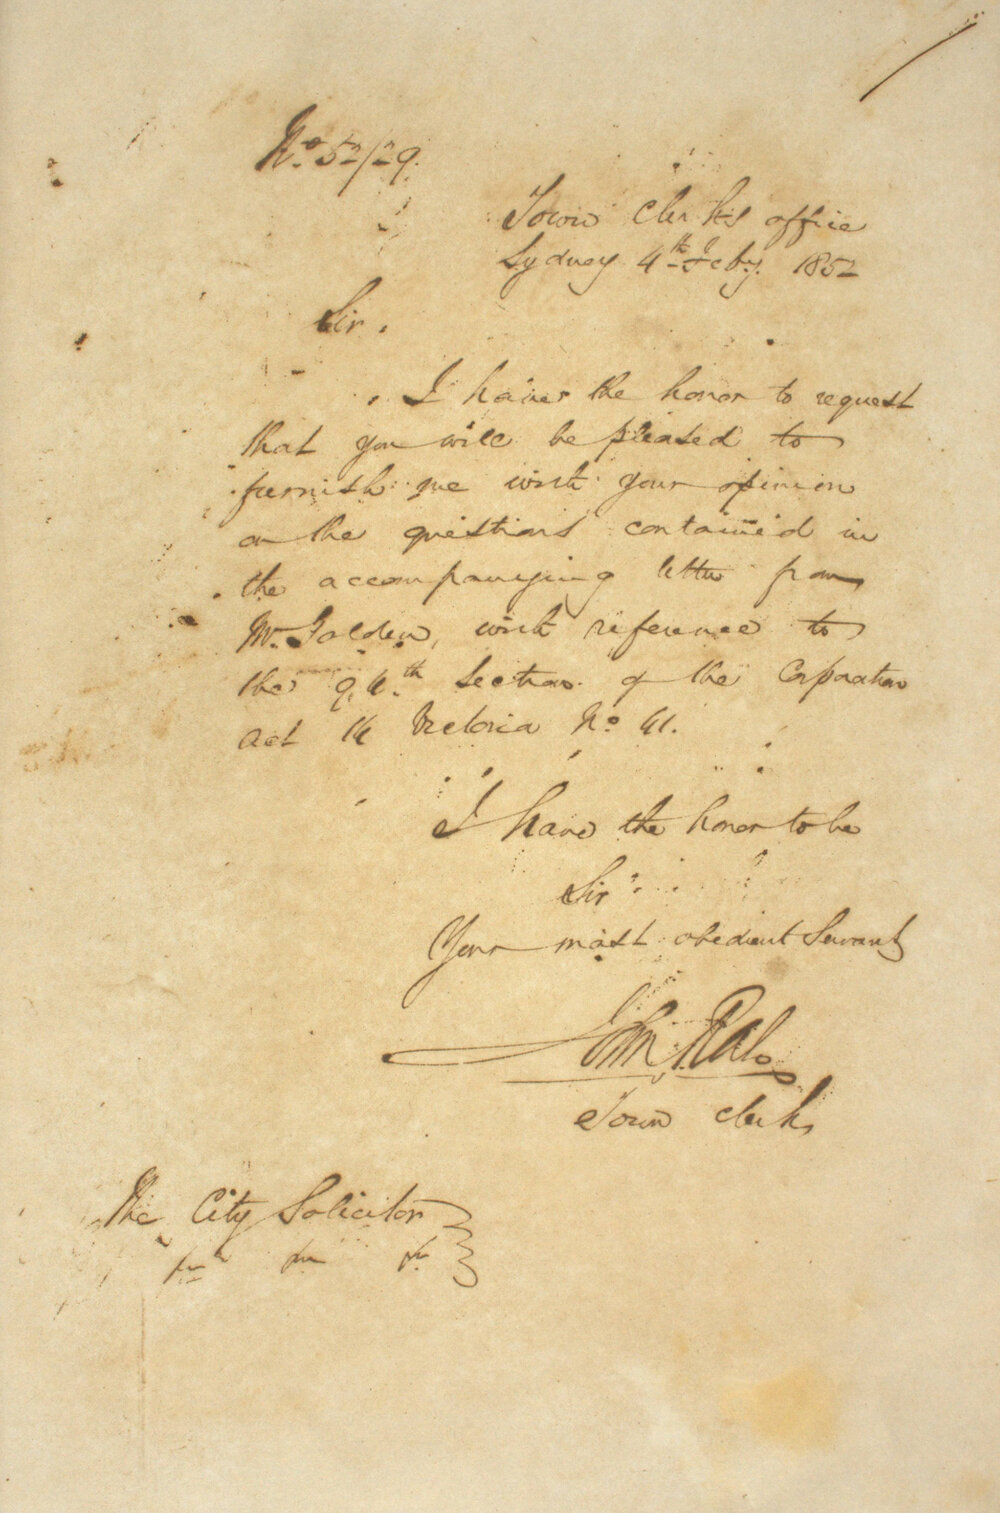 No. 52/29.
Town Clerks office
Sydney 4th Feby. 1852
Sir.
I have the honor to request
that you will be pleased to
furnish me with your opinion
on the questions contained in
the accompanying letter from
Mr. Golden, with reference to
the 94.th Section of the Corporation
act 14 Victoria No 41.
I have the honor to be
Sir
Your most obedient Servant
John Rae
Town Clerk
The City Solicitor